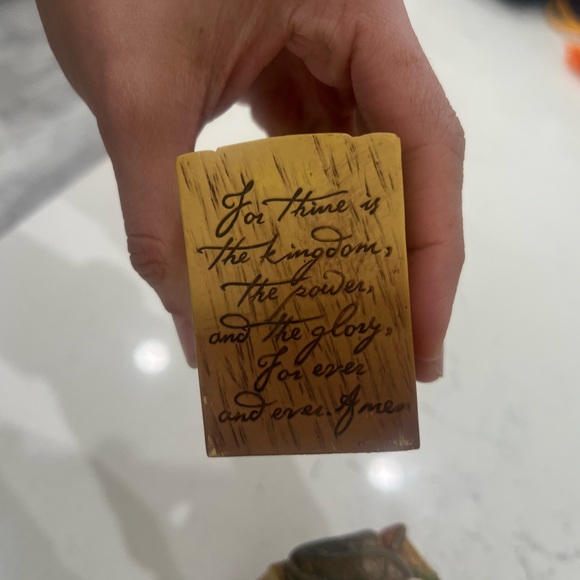 For thine is
the kingdom,
the power,
and the glory,
For ever
and ever. Amen